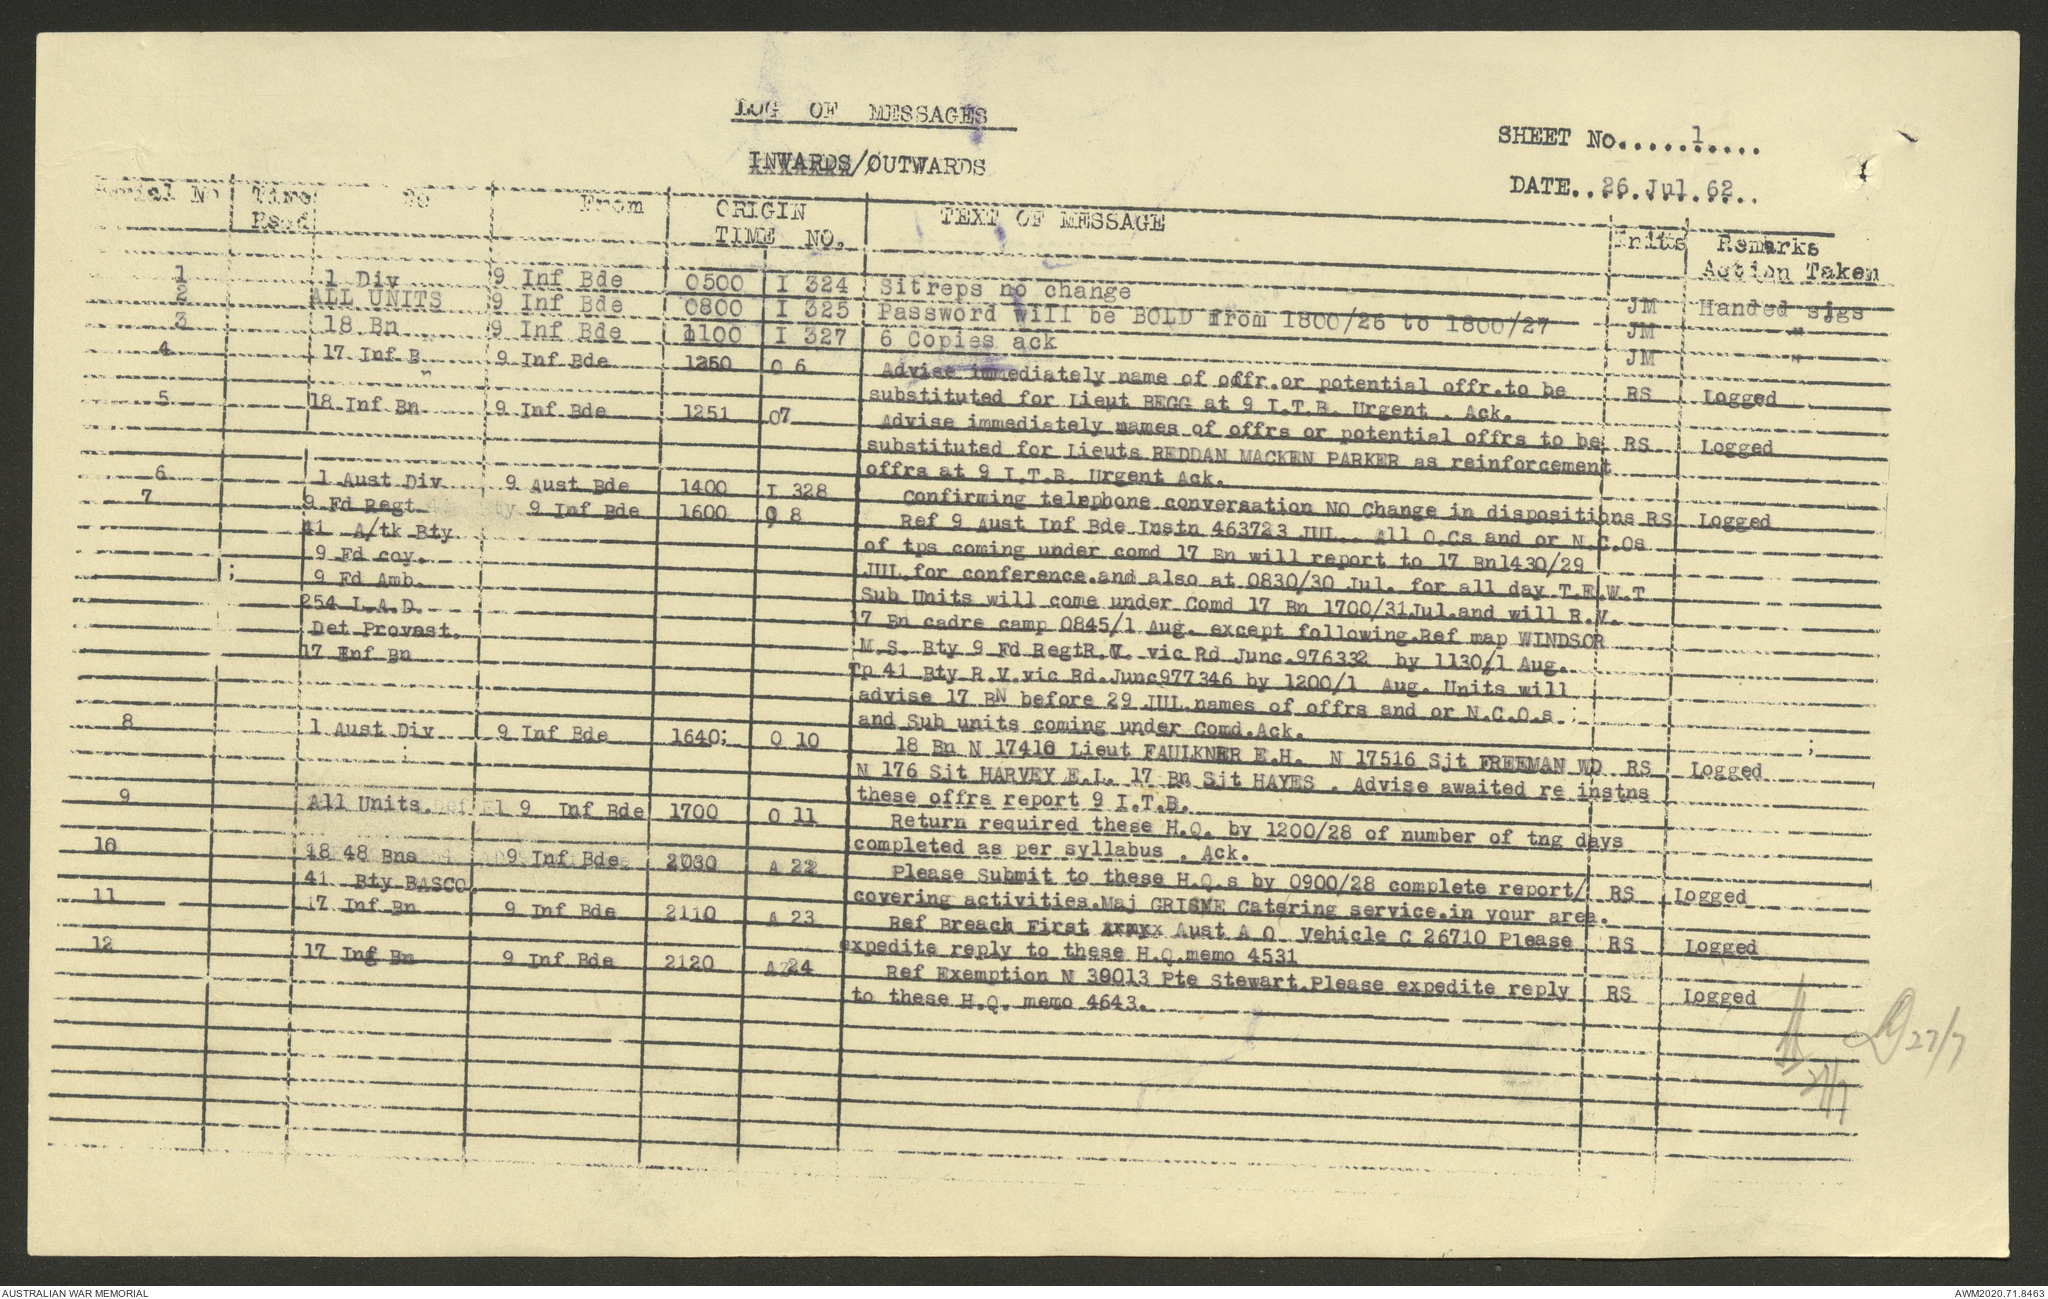 LOG OF MESSAGES
INWARDS/OUTWARDS
SHEET No.....1.....
DATE..26.Jul.62..
Serial No Time Rsed To From ORIGIN TEXT OF MESSAGE Inits Remarks
TIME NO. Action Taken
1 1 Div 9 Inf Bde 0500 I 324 Sitreps no change JM Handed sigs
2 ALL UNITS 9 Inf Bde 0800 I 325 Password will be BOLD from 1800/26 to 1800/27 JM "
3 18 Bn 9 Inf Bde 1100 I 327 6 Copies ack JM "
4 17 Inf B 9 Inf Bde 1250 O 6 Advise immediately name of offr.or potential offr.to be RS Logged
substituted for Lieut BEGG at 9 I.T.B. Urgent . Ack.
5 18 Inf Bn 9 Inf Bde 1251 O7 Advise immediately names of offrs or potential offrs to be RS Logged
substituted for Lieuts REDDAN MACKEN PARKER as reinforcement
offrs at 9 I.T.B. Urgent Ack.
6 1 Aust Div 9 Aust Bde 1400 I 328 Confirming telephone conversation NO Change in dispositions RS Logged
7 9 Fd Regt 9 Inf Bde 1600 O 8 Ref 9 Aust Inf Bde Instn 463723 JUL.. All O.Cs and or N.C.Os
41 A/tk Bty of tps coming under comd 17 Bn will report to 17 Bn1430/29
9 Fd coy. JUL.for conference.and also at 0830/30 Jul. for all day T.E.W.T
9 Fd Amb. Sub Units will come under Comd 17 Bn 1700/31Jul.and will R.V.
254 L.A.D. 17 Bn cadre camp 0845/1 Aug. except following.Ref map WINDSOR
Det Provast. M.S. Bty 9 Fd RegtR.V. vic Rd Junc.976332 by 1130/1 Aug.
17 Inf Bn Tp 41 Bty R.V.vic Rd.Junc977346 by 1200/1 Aug. Units will
advise 17 BN before 29 JUL.names of offrs and or N.C.O.s
and Sub units coming under Comd.Ack.
8 1 Aust Div 9 Inf Bde 1640; O 10 18 Bn N 17410 Lieut FAULKNER E.H. N 17516 Sjt FREEMAN WD RS Logged
N 176 Sjt HARVEY E.L. 17 Bn Sjt HAYES . Advise awaited re instns
these offrs report 9 I.T.B.
9 All Units. 9 Inf Bde 1700 O 11 Return required these H.Q. by 1200/28 of number of tng days
completed as per syllabus . Ack.
10 18 48 Bns 9 Inf Bde 2030 A 22 Please Submit to these H.Q.s by 0900/28 complete report/ RS Logged
41 Bty BASCO. covering activities.Maj GRISME Catering service.in your area.
11 17 Inf Bn 9 Inf Bde 2110 A 23 Ref Breach First Armyx Aust A O vehicle C 26710 Please RS Logged
expedite reply to these H.Q.memo 4531
12 17 Inf Bn 9 Inf Bde 2120 A 24 Ref Exemption N 39013 Pte Stewart.Please expedite reply RS Logged
to these H.Q. memo 4643.
27/7
27/7
AUSTRALIAN WAR MEMORIAL
AWM2020.71.8463